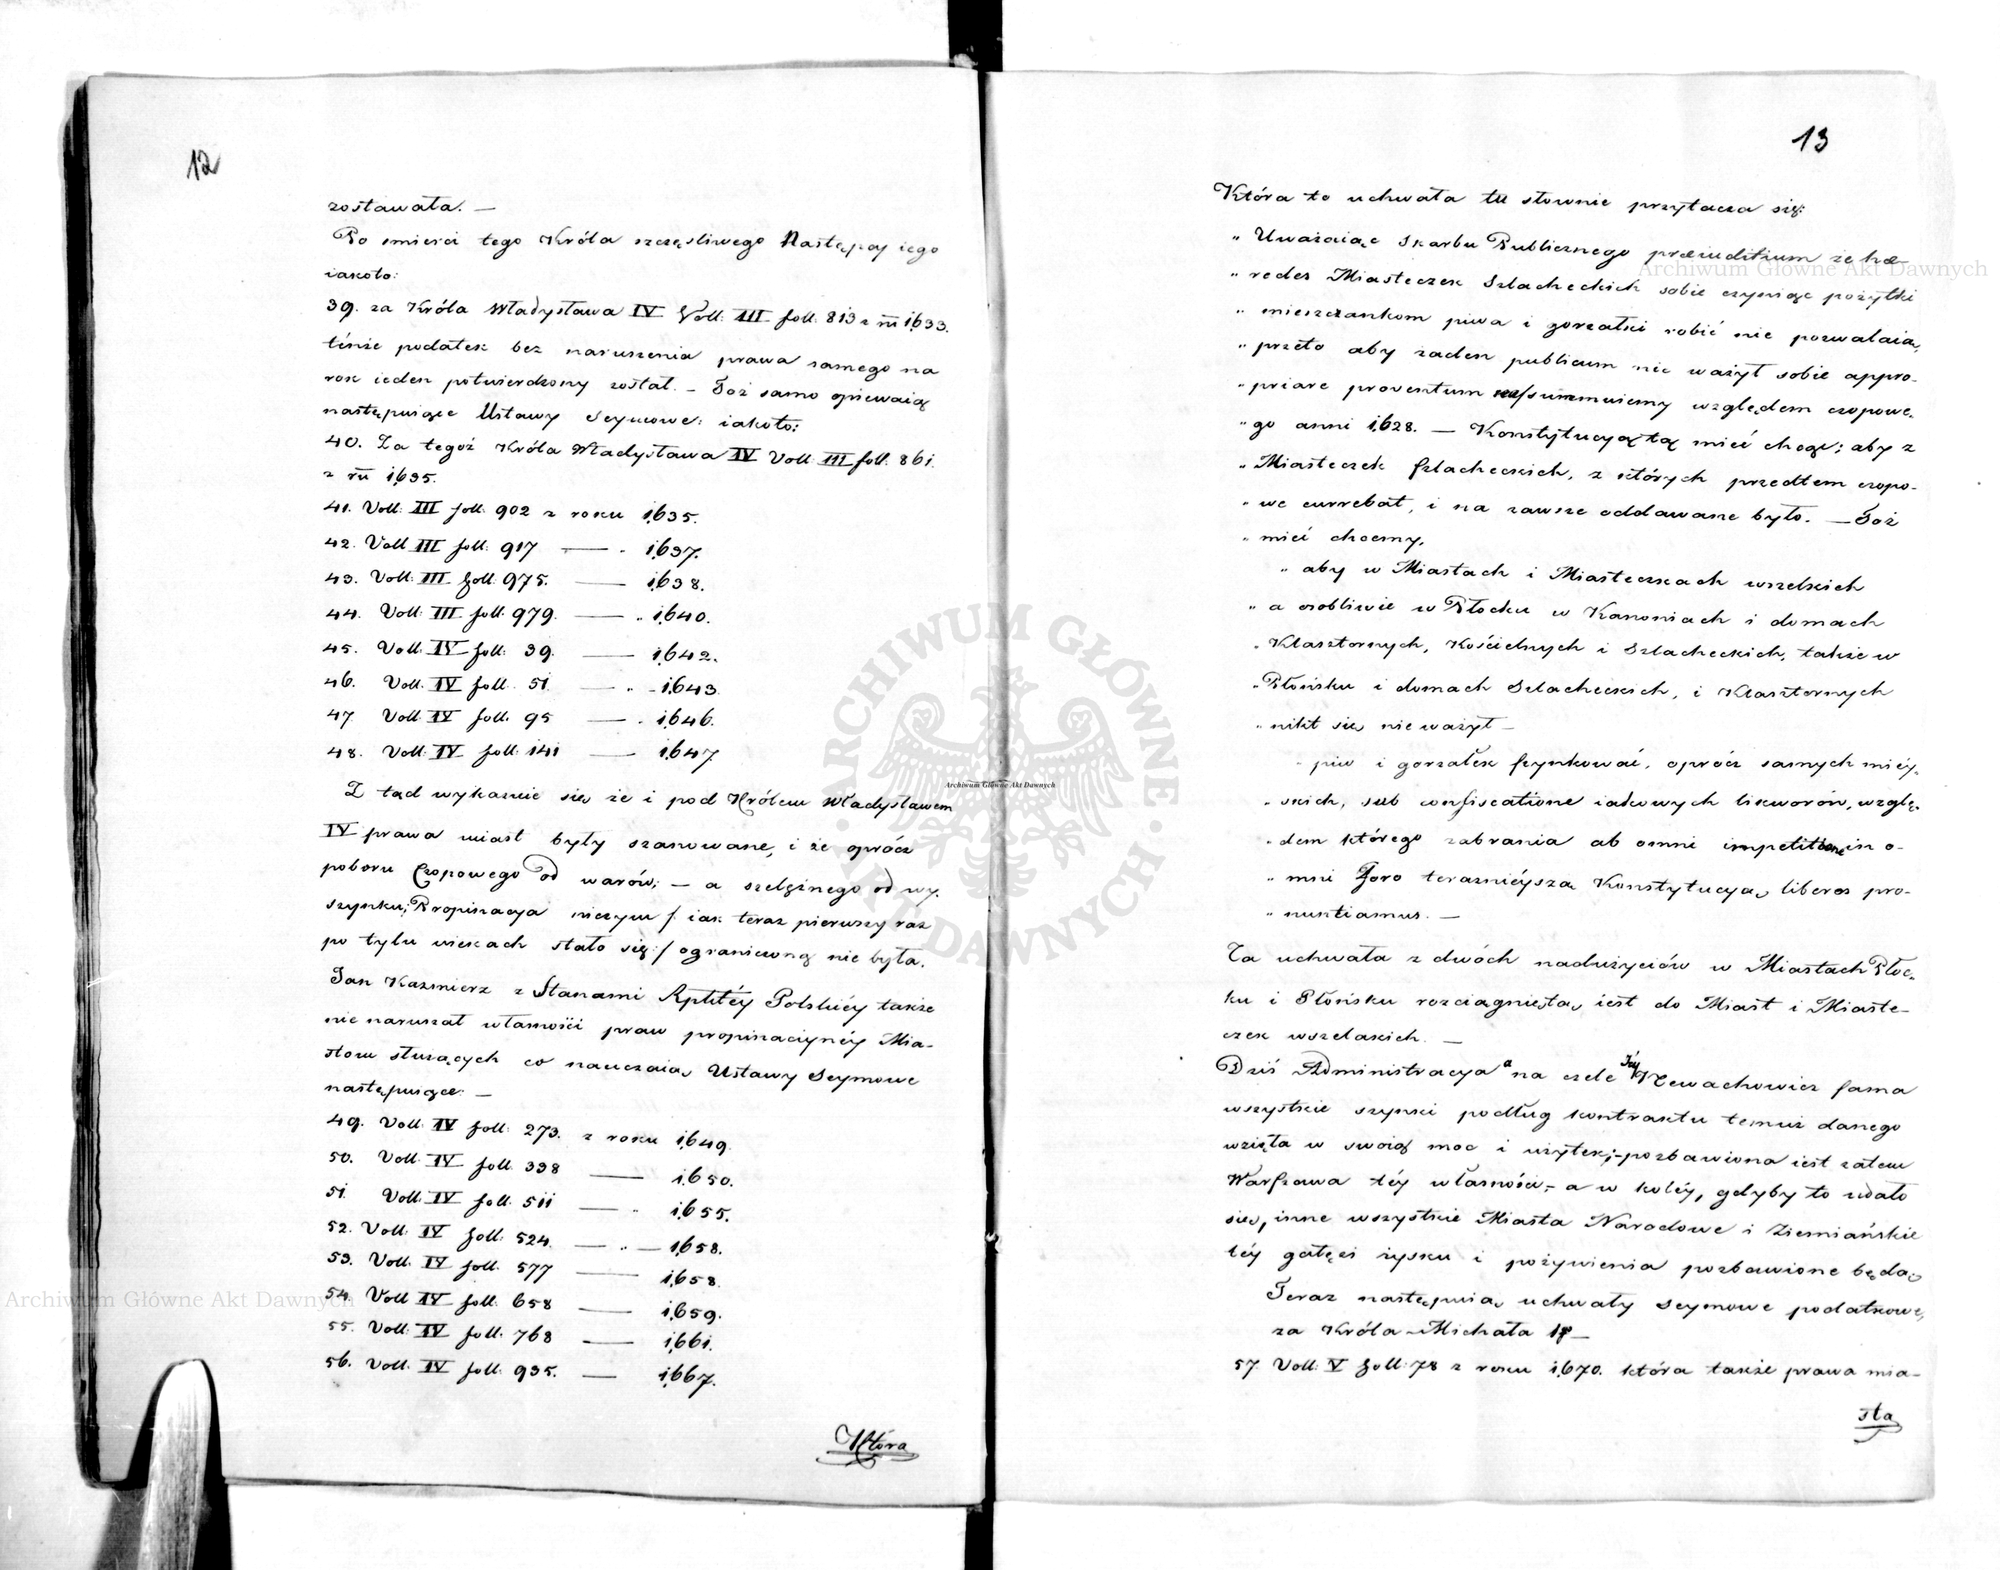 12
zostawała. —
Po śmierci tego Króla szczęśliwego Następcy iego
iakoto:
39. za Króla Władysława IV Voll: III foll: 813 z rü 1,633.
tenże podatek bez naruszenia prawa samego na
rok ieden potwierdzony został. — Toż samo opiewaią
następuiące Ustawy Seymowe: iakoto:
40. Za tegoż Króla Władysława IV Voll: III foll: 861.
z rü 1,635.
41. Voll: III foll: 902 z roku 1,635.
42. Voll III foll: 917 — „ 1,637.
43. Voll: III foll: 975. — 1,638.
44. Voll: III foll: 979. — „ 1,640.
45. Voll: IV foll: 39. — 1,642.
46. Voll: IV foll: 51 — „ — 1,643.
47. Voll: IV foll: 95 — „ 1,646.
48. Voll: IV foll: 141 — 1,647.
Z tąd wykazuie się że i pod Królem Władysławem
IV prawa miast były szanowane, i że oprócz
poboru Czopowego od warów; — a szelężnego od wy-
szynku; Propinacya niczym /: iak teraz pierwszy raz
po tylu wiekach stało się :/ ograniczoną nie była.
Jan Kazimierz z Stanami Rpltéy Polskiéy także
nie naruszał własności praw propinacyinéy Mia-
stom służących co nauczaią Ustawy Seymowe
następuiące: —
49. Voll: IV foll: 273. z roku 1,649.
50. Voll: IV foll: 338 — 1,650.
51. Voll: IV foll: 511 — „ 1,655.
52. Voll: IV foll: 524. — „ — 1,658.
53. Voll: IV foll: 577 — 1,658.
54. Voll IV foll: 658 — 1,659.
55. Voll: IV foll: 768 — 1,661.
56. Voll: IV foll: 935. — 1,667.
Która
13
Która to uchwała tu słownie przytacza się:
„ Uważaiąc Skarbu Publicznego præiuditium że hæ-
„ redes Miasteczek Szlacheckich sobie czyniąc pożytki
„ mieszczankom piwa i gorzałki robić nie pozwalaią,
„ przeto aby żaden publicum nie ważył sobie appro-
„ priare proventum reassummuiemy względem czopowe-
„ go anni 1,628. — Konstytucyą tą mieć chcąc; aby z
„ Miasteczek szlacheckich, z których przedtem czopo-
„ we currebat, i na zawsze oddawane było. — Toż
„ mieć chcemy,
„ aby w Miastach i Miasteczkach wszelkich
„ a osobliwie w Płocku w Kanoniach i domach
„ Klasztornych, Kościelnych i Szlacheckich, także w
„ Płońsku i domach Szlacheckich, i Klasztornych
„ nikt się nie ważył —
„ piw i gorzałek szynkować, oprócz samych miéy-
„ skich, sub confiscatione iakowych likworów, wzglę-
„ dem którego zabrania ab omni impetitione in o-
„ mni foro teraznieysza Konstytucyą liberos pro-
„ nuntiamus. —
Ta uchwała z dwóch nadużyciów w Miastach Płoc-
ku i Płońsku rozciągnięta iest do Miast i Miaste-
czek wszelakich. —
Dziś Administracya a na czele Izy Newachowicz sama
wszystkie szynki podług kontraktu temuż danego
wzięła w swoią moc i użytek; — pozbawiona iest zatem
Warszawa téy własności, — a w koléy, gdyby to udało
się, inne wszystkie Miasta Narodowe i Ziemiańskie
téy gałęzi zysku i pożywienia pozbawione będą.
Teraz następuią uchwały Seymowe podatkowe,
za Króla Michała 1º —
57 Voll: V foll: 78 z roku 1,670. która także prawa mia-
sta
Archiwum Główne Akt Dawnych
Archiwum Główne Akt Dawnych
Archiwum Główne Akt Dawnych
ARCHIWUM GŁÓWNE AKT DAWNYCH